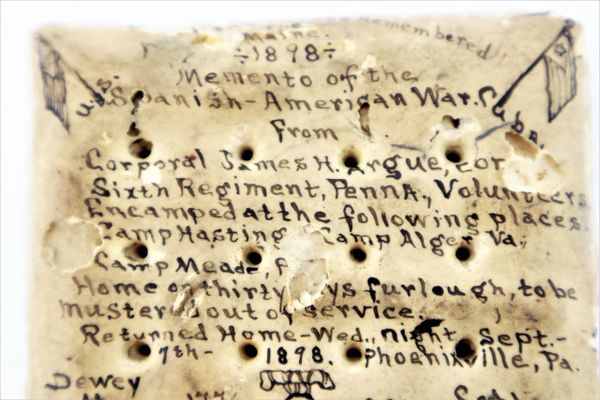 remembered
Maine.
÷1898÷
Memento of the
U.S. Spanish-American War. Cuba.
From
Corporal James H. Argue,
Sixth Regiment, Penna., Volunteers
Encamped at the following places.
Camp Hasting Camp Alger Va;
Camp Meade,
Home on thirty days furlough, to be
mustered out of service.
Returned Home-Wed., night Sept.-
7th- 1898. Phoenixville, Pa.
Dewey